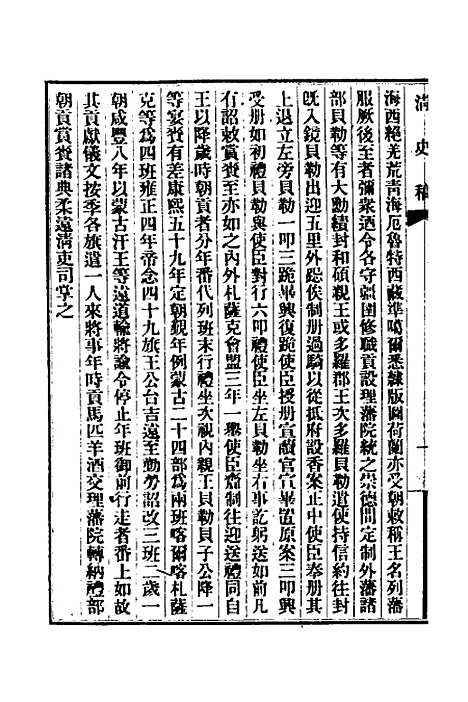 清史稿
海西絕羌荒青海厄魯特西藏準噶爾悉隸版圖荷蘭亦受朝敕稱王名列藩
服厥後至者彌衆迺令各守疆圉修職貢設理藩院統之崇德間定制外藩諸
部貝勒等有大勳績封和碩親王或多羅郡王次多羅貝勒遣使持信約往封
旣入鏡貝勒出迎五里外跽俟制册過騎以從抵府設香案正中使臣奉册其
上退立左旁貝勒一叩三跪畢興復跪使臣授册宣讀官宣畢置原案三叩興
受册如初禮貝勒與使臣對行六叩禮使臣坐左貝勒坐右事訖躬送如前凡
有詔敕賞賚至亦如之內外札薩克會盟三年一舉使臣齎制往迎送禮同自
王以降歲時朝貢者分年番代列班末行禮坐次視內親王貝勒貝子公降一
等宴賚有差康熙五十九年定朝覲年例蒙古二十四部爲兩班喀爾喀札薩
克等爲四班雍正四年帝念四十九旗王公台吉遠至勤勞詔改三班二歲一
朝咸豐八年以蒙古汗王等遠道輸將諭令停止年班御前行走者番上如故
其貢獻儀文按季各旗遣一人來將事年時貢馬匹羊酒交理藩院轉納禮部
朝貢賞賚諸典柔遠淸吏司掌之